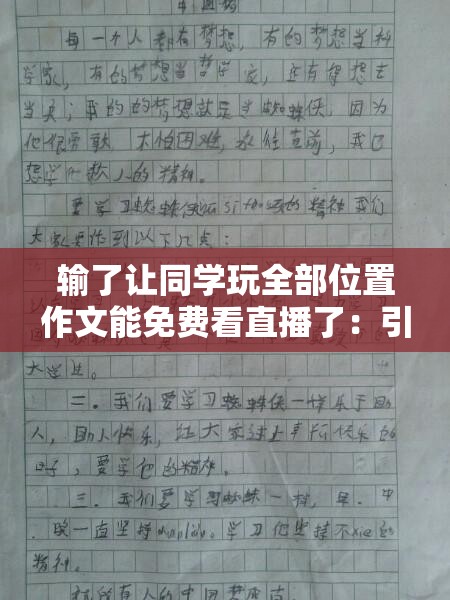 每一个人都有梦想，有的梦想当科
学家，有的梦想当哲学家，还有梦想去
当兵；我的的梦想就是当蜘蛛侠，因为
他很勇敢，不怕困难，永往直前，我已
想学他救人的精神。
要学习蜘蛛侠的精神我们
大家要作到以下几点：
输了让同学玩全部位置
作文能免费看直播了：引
大学生。
二．我们要学习蜘蛛侠一样乐于助
人，助人快乐，让大家过上幸福快乐的
日子，要学他的精神。
三．我们要学习蜘蛛一样，早．中
．晚一直坚持 学习他坚持不xie的
精神。
所有人的中国梦成真